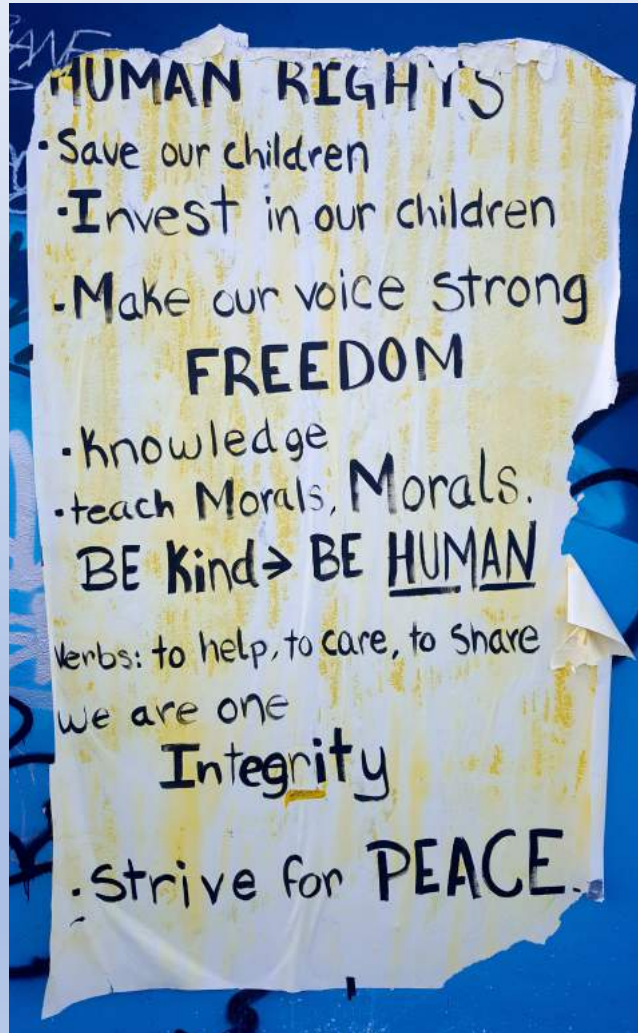 HUMAN RIGHTS
·Save our children
·Invest in our children
·Make our voice strong
FREEDOM
·Knowledge
·teach Morals, Morals.
BE Kind> BE HUMAN
Verbs: to help, to care, to share
we are one
Integrity
·Strive for PEACE.